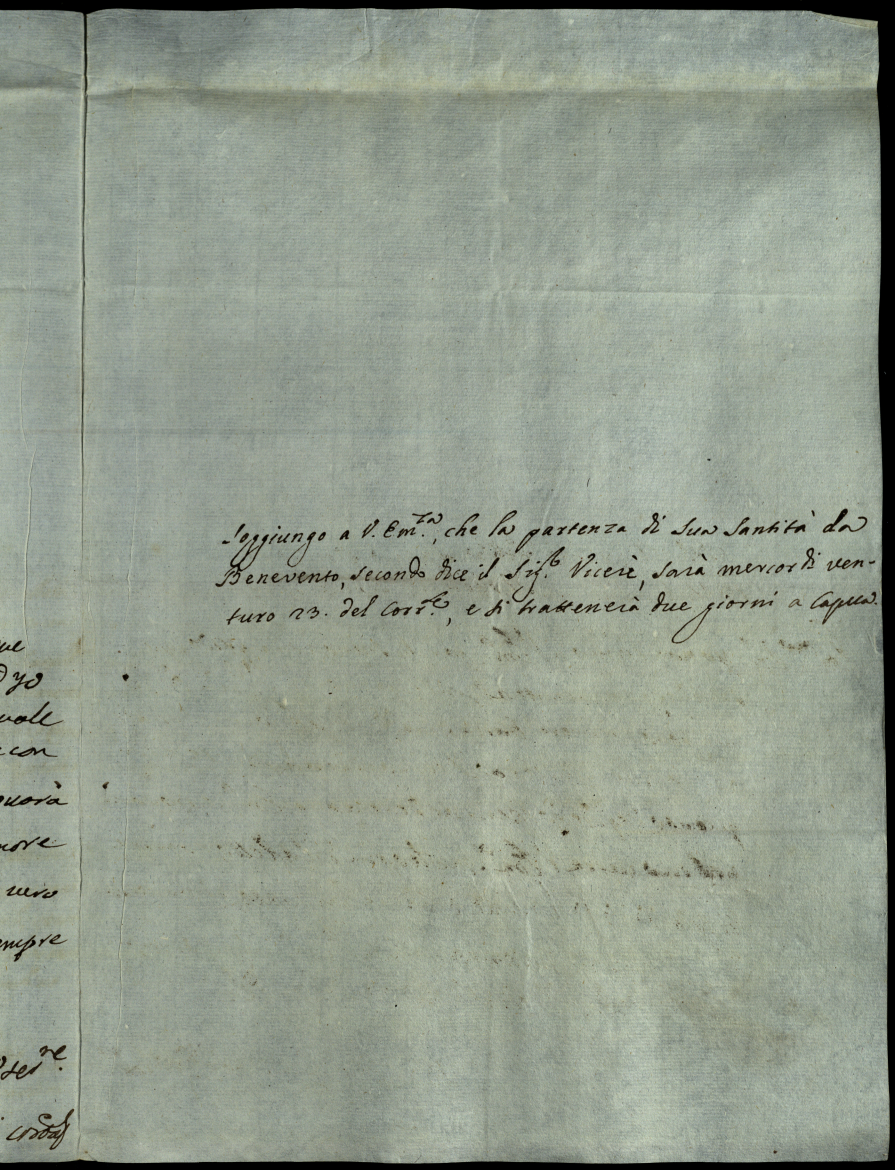 ue
yo
uale
con
nore
vero
empre
ser.re
Soggiungo a V. Em.za, che la partenza di Sua Santità da
Benevento, secondo dice il Sig.r Vicerè, sarà mercordi ven-
turo 23. del Corr.te, e si tratterrà due giorni a Capua.